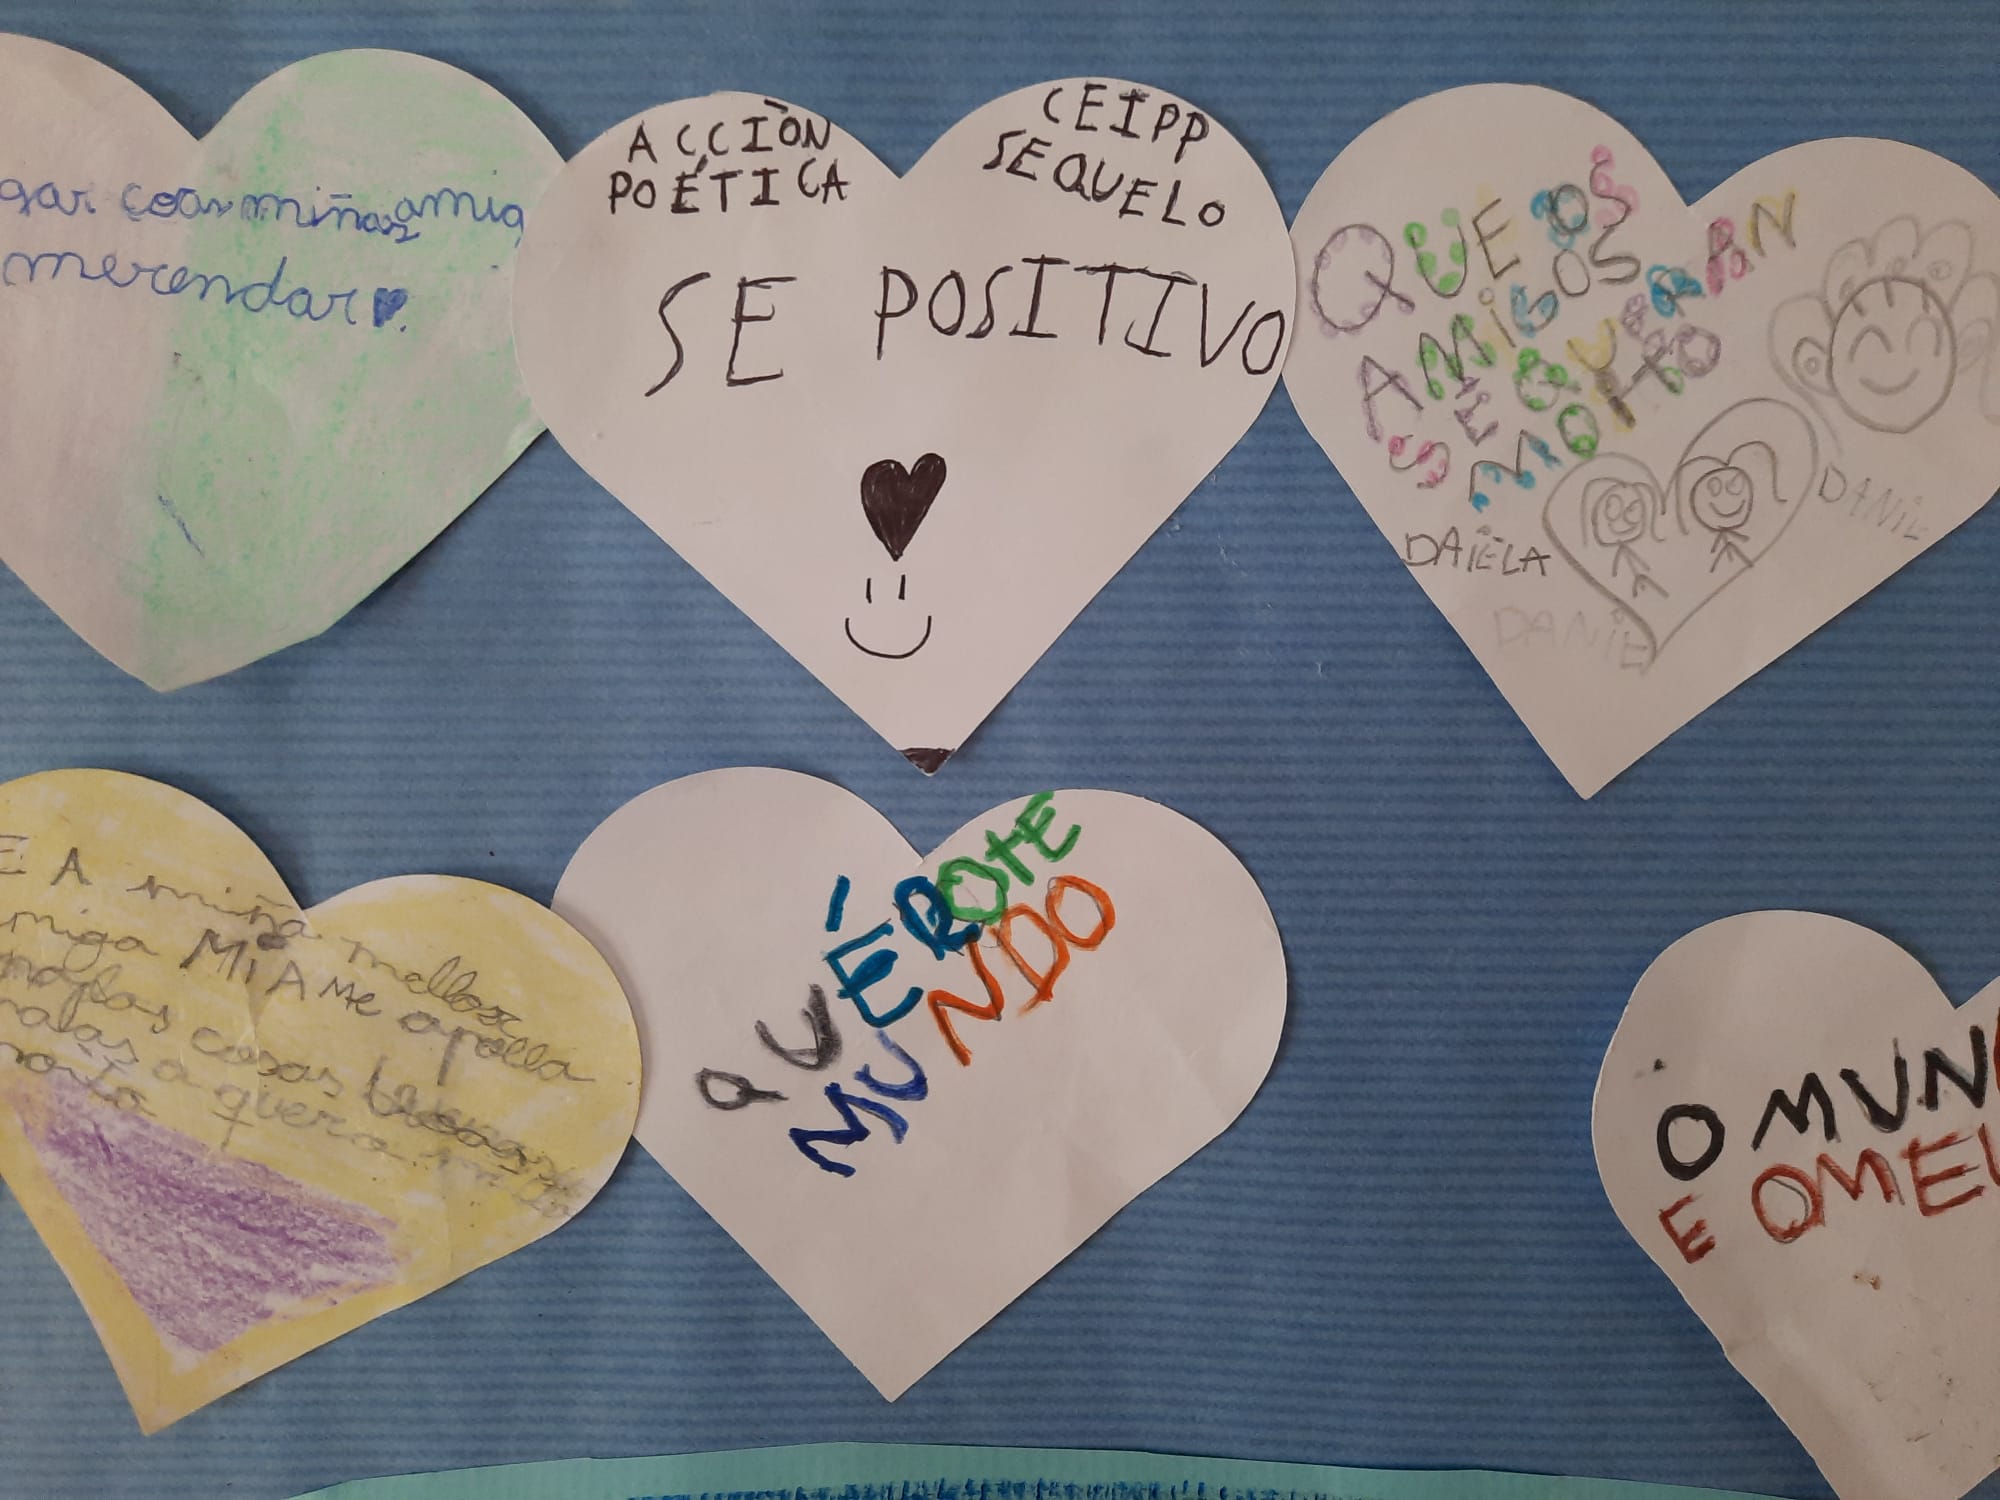 gar coas miñas amig
merendar
ACCIÒN
POÉTICA
CEIPP
SEQUELO
SE POSITIVO
QUE OS
AMiGOS
SE QUERAN
MOITO
DAiELA
DANiE
DANiE
E A miña mellor
miga MiA Me apoLLa
cosas
malas a quero
QUÉROTE
MUNDO
O MUN
E OMEL